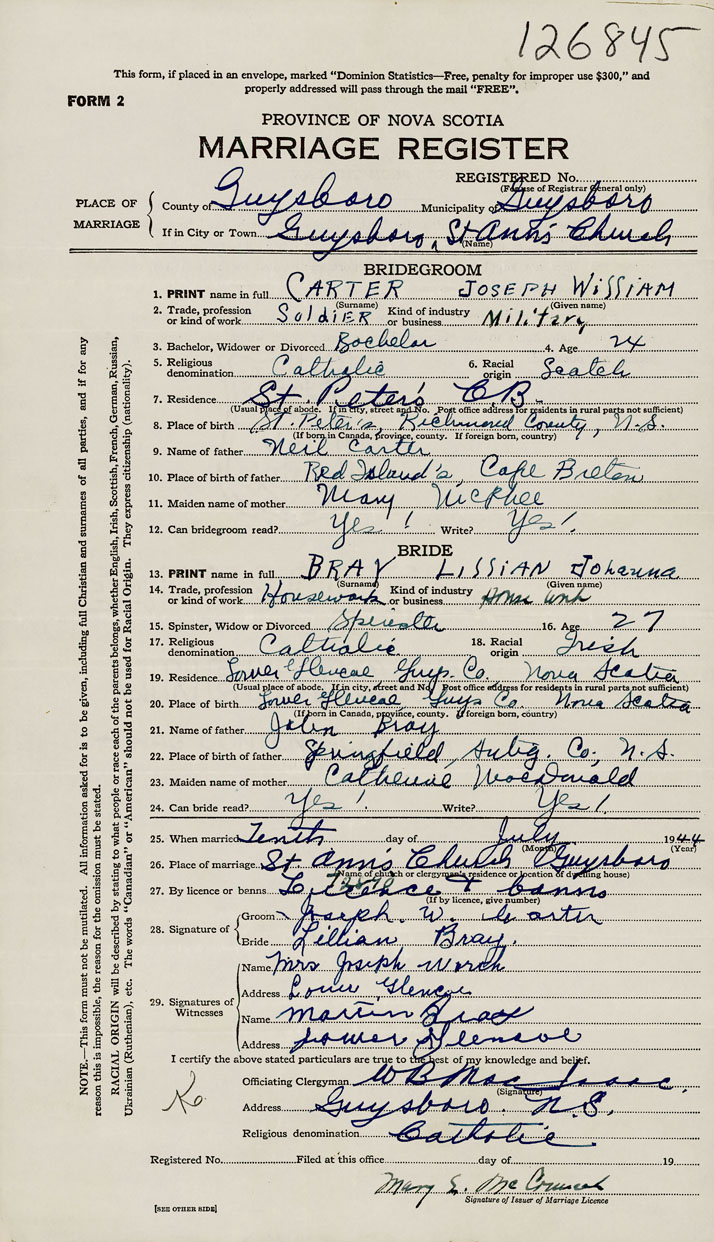 126845
This form, if placed in an envelope, marked "Dominion Statistics—Free, penalty for improper use $300," and
properly addressed will pass through the mail "FREE".
FORM 2
PROVINCE OF NOVA SCOTIA
MARRIAGE REGISTER
REGISTERED No.
(For use of Registrar General only)
PLACE OF MARRIAGE
County of Guysboro Municipality of Guysboro
If in City or Town Guysboro, St Ann's Church
(Name)
BRIDEGROOM
1. PRINT name in full CARTER JOSEPH WILLIAM
(Surname) (Given name)
2. Trade, profession or kind of work Soldier Kind of industry or business Military
3. Bachelor, Widower or Divorced Bachelor 4. Age 24
5. Religious denomination Catholic 6. Racial origin Scotch
7. Residence St. Peter's C.B.
(Usual place of abode. If in city, street and No. Post office address for residents in rural parts not sufficient)
8. Place of birth St. Peter's, Richmond County, N.S.
(If born in Canada, province, county. If foreign born, country)
9. Name of father Neil Carter
10. Place of birth of father Red Island's, Cape Breton
11. Maiden name of mother Mary McPhee
12. Can bridegroom read? Yes! Write? Yes!
BRIDE
13. PRINT name in full BRAY LILLIAN Johanna
(Surname) (Given name)
14. Trade, profession or kind of work Housework Kind of industry or business House Work
15. Spinster, Widow or Divorced Spinster 16. Age 27
17. Religious denomination Catholic 18. Racial origin Irish
19. Residence Lower Glencoe Guys. Co. Nova Scotia
(Usual place of abode. If in city, street and No. Post office address for residents in rural parts not sufficient)
20. Place of birth Lower Glencoe Guys Co. Nova Scotia
(If born in Canada, province, county. If foreign born, country)
21. Name of father John Bray
22. Place of birth of father Springfield, Antig. Co., N.S.
23. Maiden name of mother Catherine MacDonald
24. Can bride read? Yes! Write? Yes!
25. When married Tenth day of July 1944
(Month) (Year)
26. Place of marriage St Ann's Church Guysboro
(Name of church or clergyman's residence or location of dwelling house)
27. By licence or banns Licence & banns
(If by licence, give number)
28. Signature of
Groom Joseph. W. Carter
Bride Lillian Bray.
29. Signatures of Witnesses
Name Mrs Joseph
Address Lower Glencoe
Name Martin Bray
Address Lower Glencoe
I certify the above stated particulars are true to the best of my knowledge and belief.
Officiating Clergyman W B MacIsaac
(Signature)
Address Guysboro. N.S.
Religious denomination Catholic
Registered No. Filed at this office day of 19
Mary E.
Signature of Issuer of Marriage Licence
[SEE OTHER SIDE]
NOTE.—This form must not be mutilated. All information asked for is to be given, including full Christian and surnames of all parties, and if for any
reason this is impossible, the reason for the omission must be stated.
RACIAL ORIGIN will be described by stating to what people or race each of the parents belongs, whether English, Irish, Scottish, French, German, Russian,
Ukrainian (Ruthenian), etc. The words "Canadian" or "American" should not be used for Racial Origin. They express citizenship (nationality).